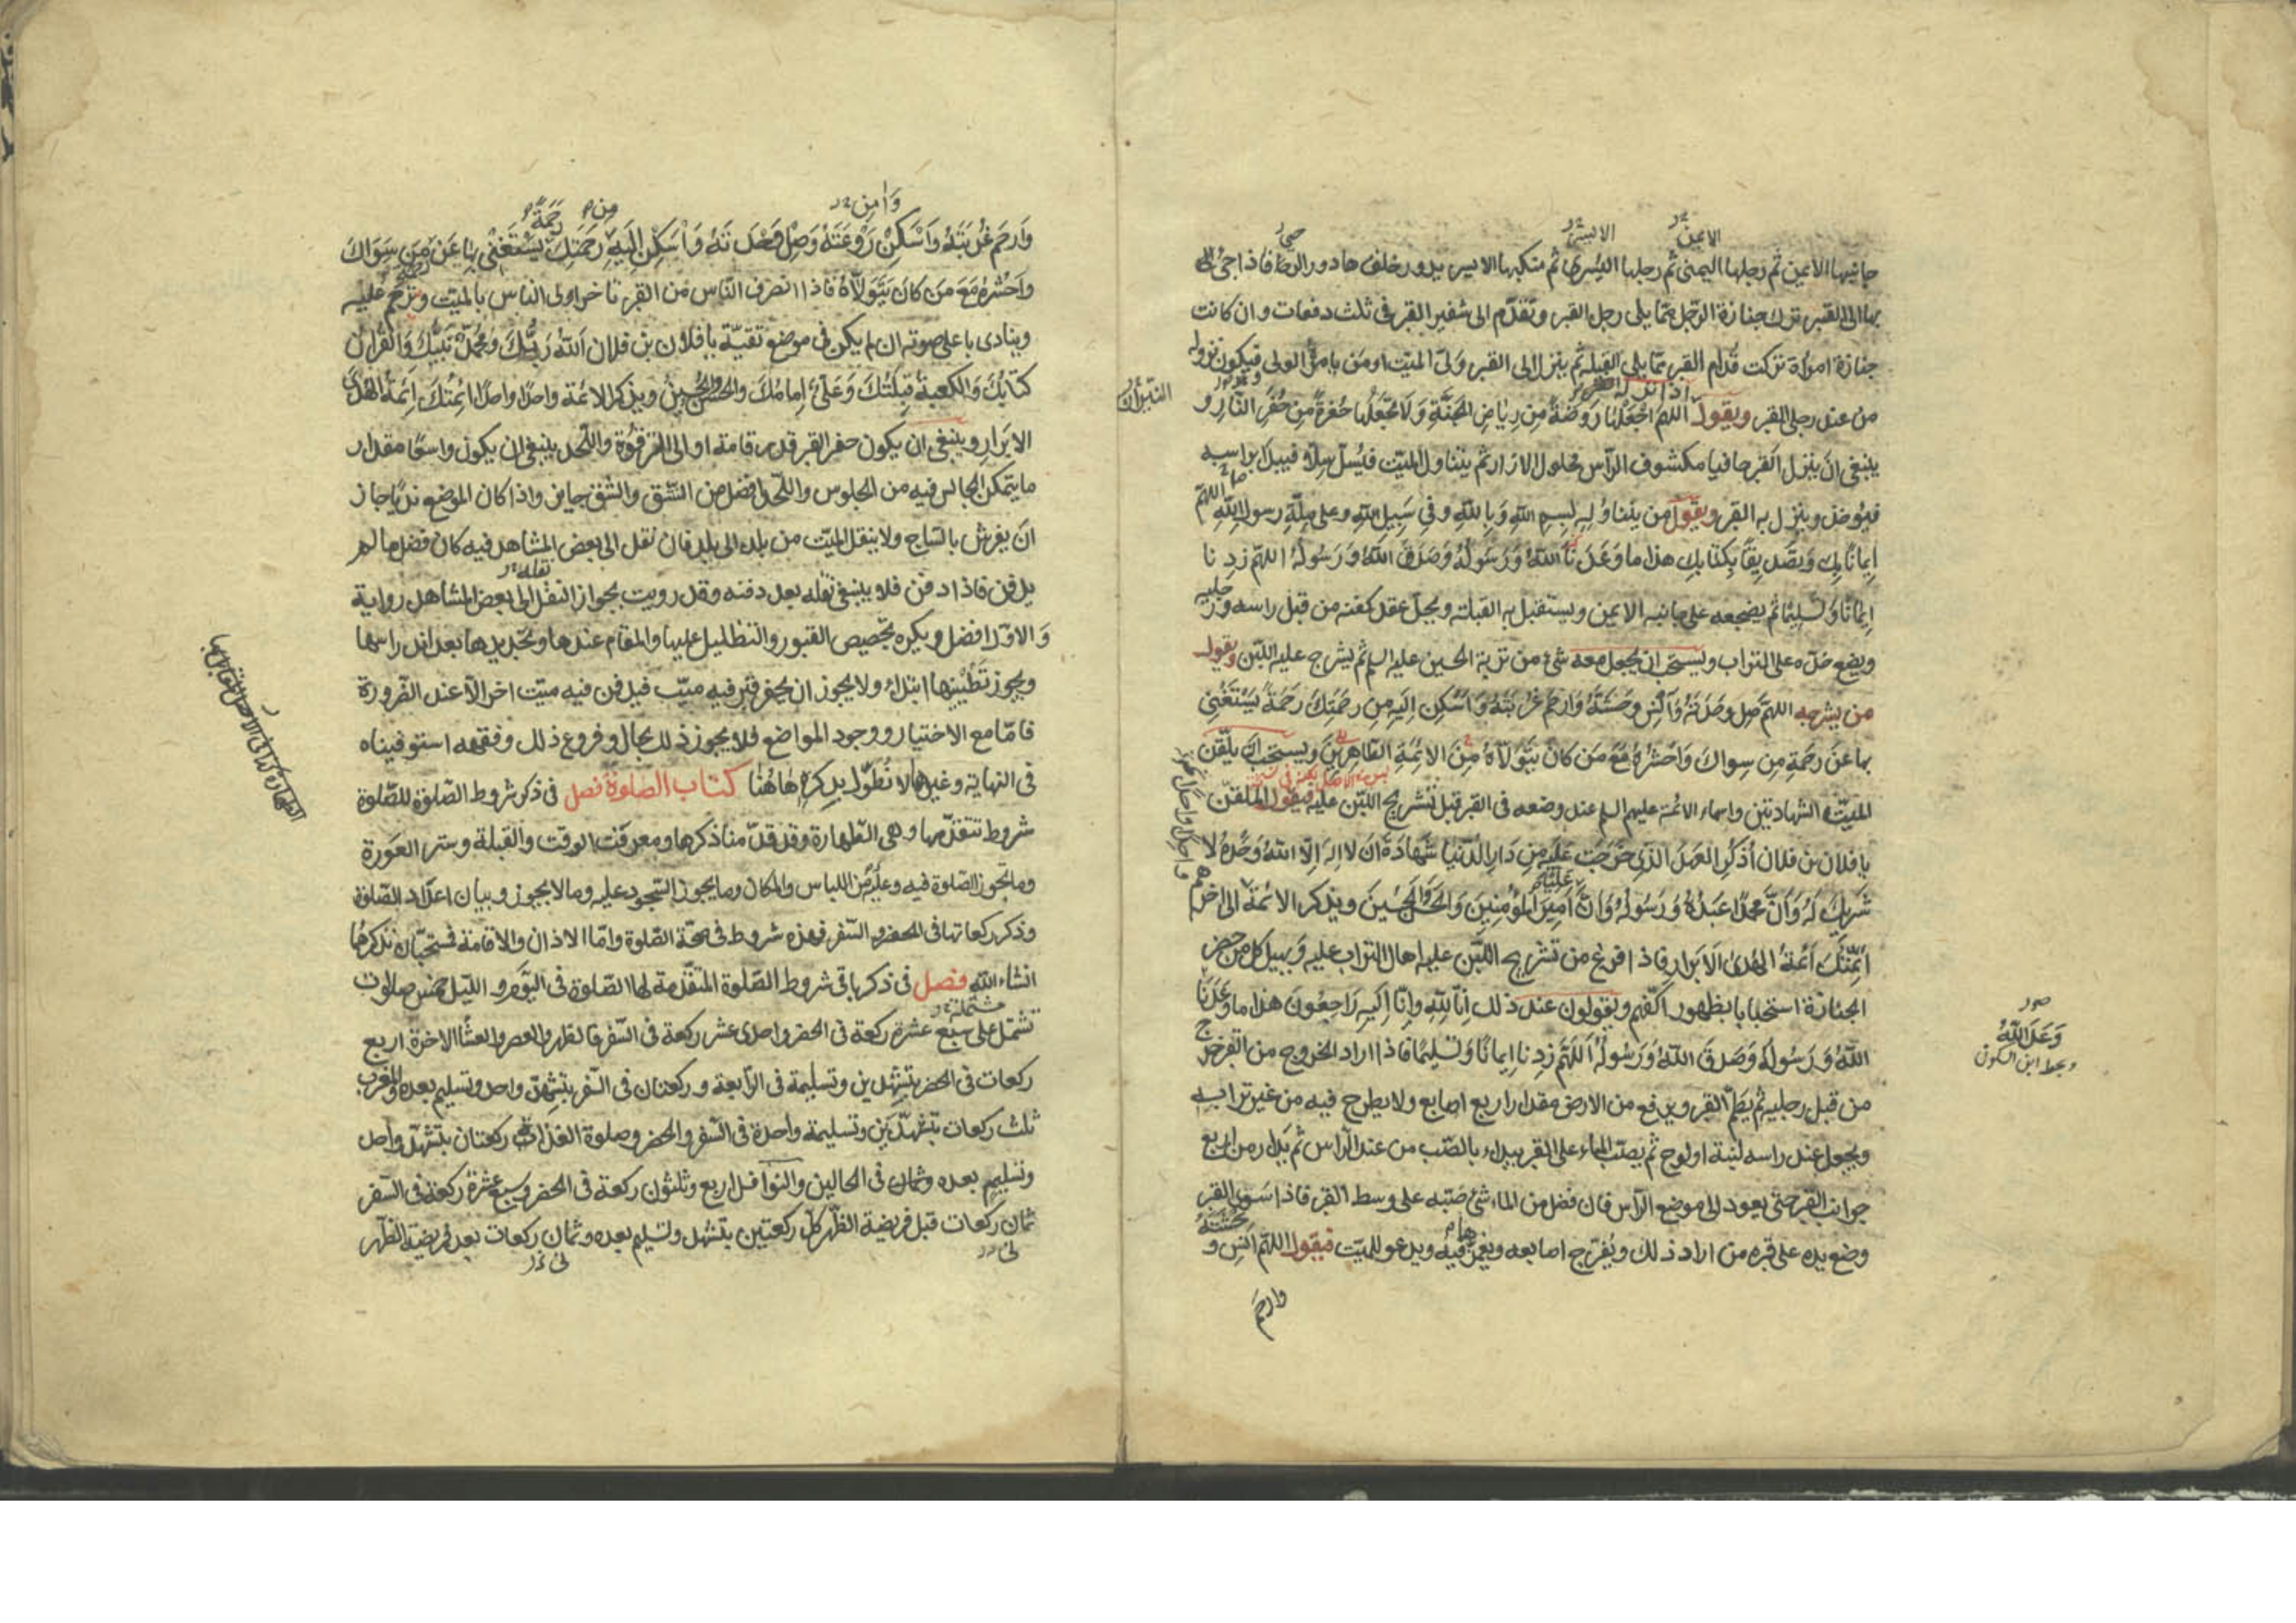 جانبها الايمن ثم رجلها اليمنى ثم رجلها اليسرى ثم منكبها الايسر يدور خلفها دور الرحا فاذا جئ
بها الى القبر ترك جنازة الرجل مما يلى رجل القبر وتقدم الى شفير القبر فى ثلث دفعات وان كانت
جنازة امراة تركت قدام القبر مما يلى القبلة ثم ينزل الى القبر ولى الميت او من يامره الولى فيكون نزوله
من عند رجلى القبر ويقول اللهم اجعلها روضة من رياض الجنة ولا تجعلها حفرة من حفر النار و
ينبغى ان ينزل القبر حافيا مكشوف الراس محلول الازرار ثم يتناول الميت فيسل سلا فيبدا براسه
فيؤخذ وينزل به القبر ويقول من يتناوله بسم الله وبالله وفى سبيل الله وعلى ملة رسول الله اللهم
ايمانا بك وتصديقا بكتابك هذا ما وعدنا الله ورسوله وصدق الله ورسوله اللهم زدنا
ايمانا وتسليما ثم يضجعه على جانبه الايمن ويستقبل به القبلة ويحل عقد كفنه من قبل راسه ورجليه
ويضع خده على التراب ويستحب ان يجعل معه شئ من تربة الحسين عليه السلم ثم يشرج عليه اللبن ويقول
من يشرجه اللهم صل وحدته وآنس وحشته وارحم غربته واسكن اليه من رحمتك رحمة يستغنى
بها عن رحمة من سواك واحشره مع من كان يتولاه من الائمة الطاهرين ويستحب ان يلقن
الميت الشهادتين واسماء الائمة عليهم السلم عند وضعه فى القبر قبل تشريج اللبن عليه فيقول الملقن
يا فلان بن فلان اذكر العهد الذى خرجت عليه من دار الدنيا شهادة ان لا اله الا الله وحده لا
شريك له وان محمدا عبده ورسوله وان عليا امير المؤمنين والحسن والحسين ويذكر الائمة الى اخرهم
ائمتك ائمة الهدى الابرار فاذا فرغ من تشريج اللبن عليه اهال التراب عليه ويهيل كل من حضر
الجنازة استحبابا بظهور اكفهم ويقولون عند ذلك انا لله وانا اليه راجعون هذا ما وعدنا
الله ورسوله وصدق الله ورسوله اللهم زدنا ايمانا وتسليما فاذا اراد الخروج من القبر خرج
من قبل رجليه ثم يطم القبر ويرفع من الارض مقدار اربع اصابع ولا يطرح فيه من غير ترابه
ويجعل عند راسه لبنة او لوح ثم يصب الماء على القبر يبداء بالصب من عند الراس ثم يدار من اربع
جوانب القبر حتى يعود الى موضع الراس فان فضل من الماء شئ صبه على وسط القبر فاذا سوى القبر
وضع يده على قبره من اراد ذلك ويفرج اصابعه ويغمزها فيه ويدعو للميت فيقول اللهم انس وحشته و
وارحم
وعد الله
وبخط ابن السكون
النيران
وارحم غربته واسكن روعته وصل وحدته واسكن اليه رحمتك يستغنى بها عن من سواك
واحشره مع من كان يتولاه فاذا انصرف الناس من القبر تاخر اولى الناس بالميت وترحم عليه
وينادى باعلى صوته ان لم يكن فى موضع تقية يا فلان بن فلان الله ربك ومحمد نبيك والقران
كتابك والكعبة قبلتك وعلى امامك والحسن والحسين ويذكر الائمة واحدا واحدا ائمتك ائمة الهدى
الابرار وينبغى ان يكون حفر القبر قدر قامة او الى الترقوة واللحد ينبغى ان يكون واسعا مقدار
ما يتمكن الجالس فيه من الجلوس واللحد افضل من الشق والشق جايز واذا كان الموضع نديا جاز
ان يفرش بالساج ولا ينقل الميت من بلد الى بلد فان نقل الى بعض المشاهد فيه كان فضل ما لم
يدفن فاذا دفن فلا ينبغى نقله بعد دفنه وقد رويت بجواز النقل الى بعض المشاهد رواية
والاول افضل ويكره تجصيص القبور والتظليل عليها والمقام عندها وتجديدها بعد اندراسها
ويجوز تطيينها ابتداء ولا يجوز ان يحفر قبر فيه ميت فيدفن فيه ميت اخر الا عند الضرورة
فاما مع الاختيار ووجود المواضع فلا يجوز ذلك بحال وفروع ذلك وفقهه استوفيناه
فى النهاية وغيرها لا نطول بذكره هاهنا كتاب الصلوة فصل فى ذكر شروط الصلوة للصلوة
شروط تتقدمها وهى الطهارة وقد قدمنا ذكرها ومعرفت الوقت والقبلة وستر العورة
وما تجوز الصلوة فيه وعليه من اللباس والمكان وما يجوز السجود عليه وما لا يجوز وبيان اعداد الصلوة
وذكر ركعاتها فى الحضر والسفر فهذه شروط فى صحة الصلوة واما الاذان والاقامة فمستحبان نذكرهما
انشاء الله فصل فى ذكر باقى شروط الصلوة المتقدمة لها الصلوة فى اليوم والليل خمس صلوات
تشتمل على سبع عشرة ركعة فى الحضر واحدى عشر ركعة فى السفر فالظهر والعصر والعشا الاخرة اربع
ركعات فى الحضر بتشهدين وتسليمة فى الرابعة وركعتان فى السفر بتشهد واحد وتسليم بعده والمغرب
ثلث ركعات بتشهدين وتسليمة واحدة فى السفر والحضر وصلوة الغداة ركعتان بتشهد واحد
وتسليم بعده وثمان فى الحالين والنوافل اربع وثلثون ركعة فى الحضر وسبع عشرة ركعة فى السفر
ثمان ركعات قبل فريضة الظهر كل ركعتين بتشهد وتسليم بعده وثمان ركعات بعد فريضة الظهر